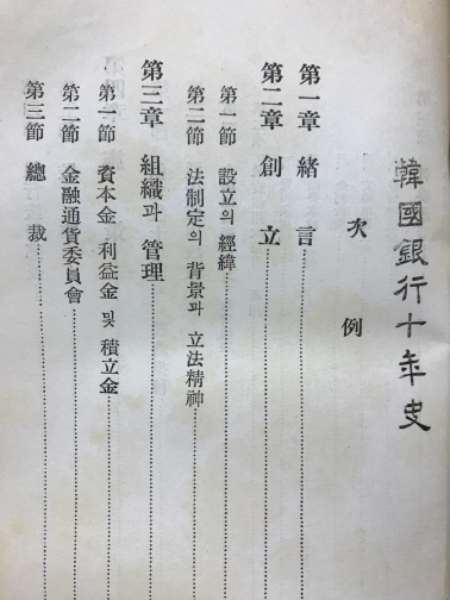 韓國銀行十年史
次例
第一章 緖言
第二章 創立
第一節 設立의 經緯
第二節 法制定의 背景과 立法精神
第三章 組織과 管理
第一節 資本金、利益金 및 積立金
第二節 金融通貨委員會
第三節 總裁